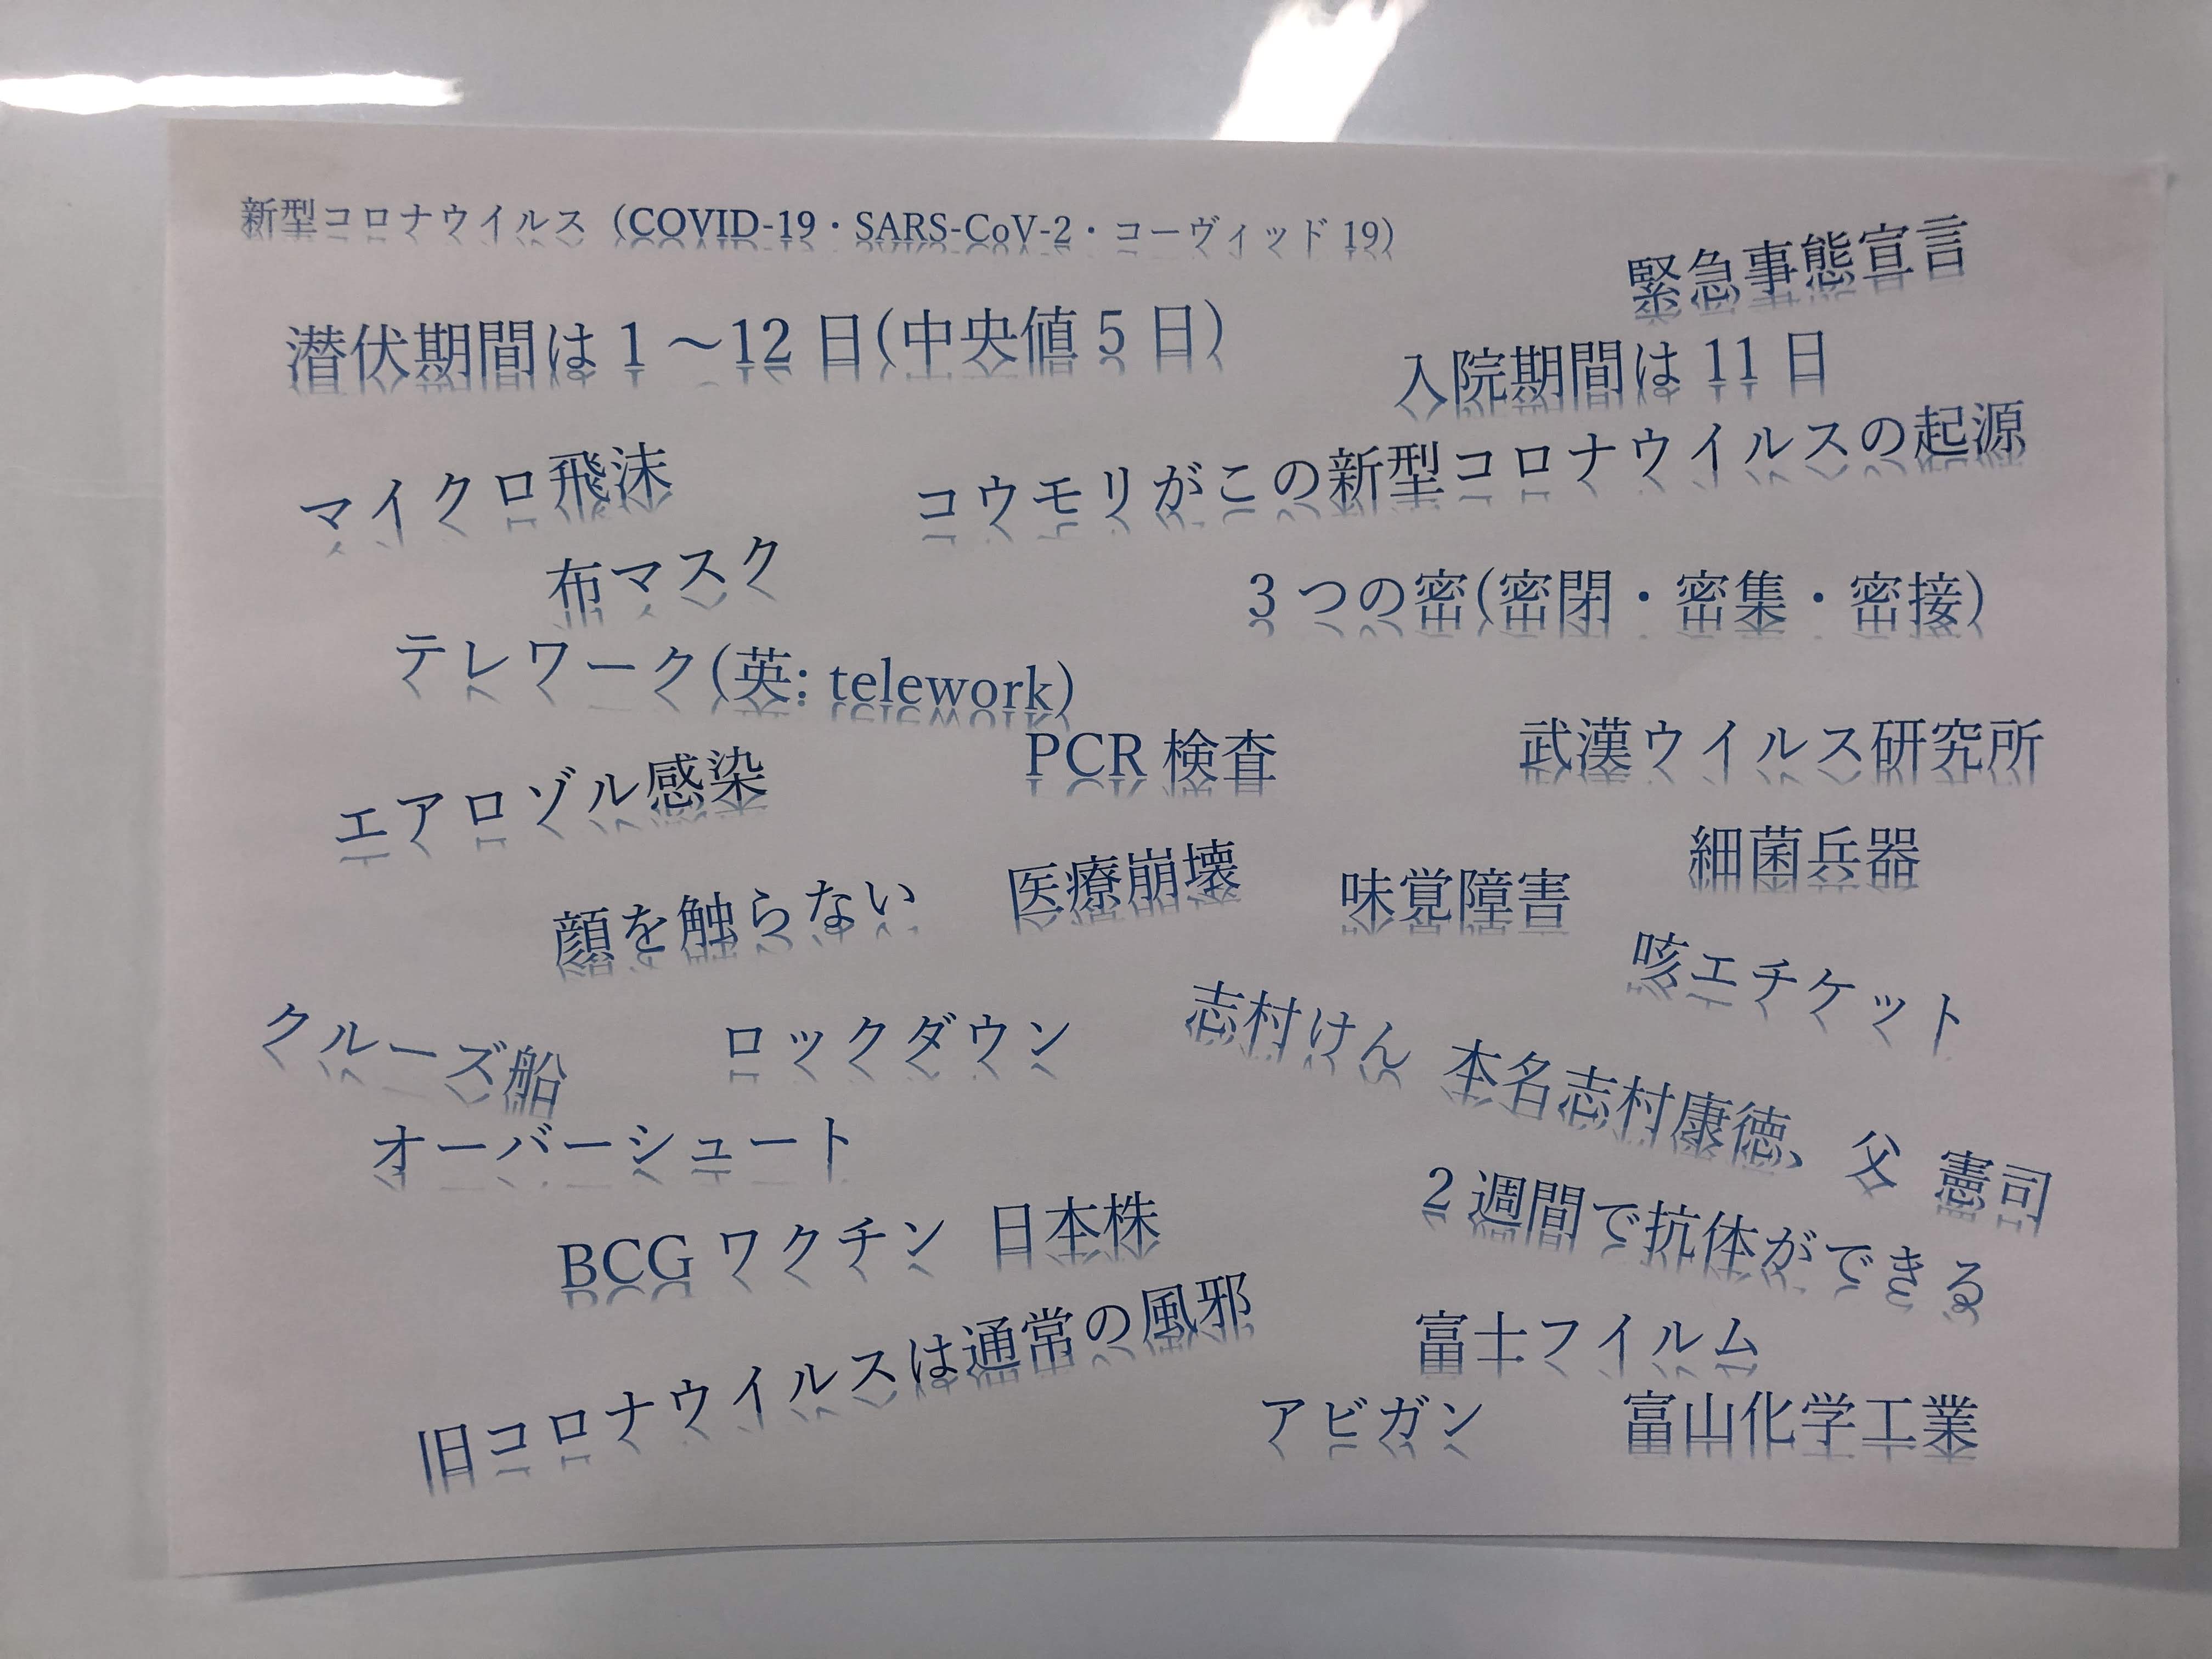 新型コロナウイルス（COVID-19・SARS-CoV-2・コーヴィッド19）
緊急事態宣言
潜伏期間は1～12日(中央値5日)
入院期間は11日
マイクロ飛沫
コウモリがこの新型コロナウイルスの起源
布マスク
3つの密(密閉・密集・密接)
テレワーク(英: telework)
PCR検査
武漢ウイルス研究所
エアロゾル感染
細菌兵器
顔を触らない
医療崩壊
味覚障害
咳エチケット
クルーズ船
ロックダウン
志村けん 本名志村康徳、父 憲司
オーバーシュート
2週間で抗体ができる
BCGワクチン 日本株
旧コロナウイルスは通常の風邪
富士フイルム
アビガン
富山化学工業